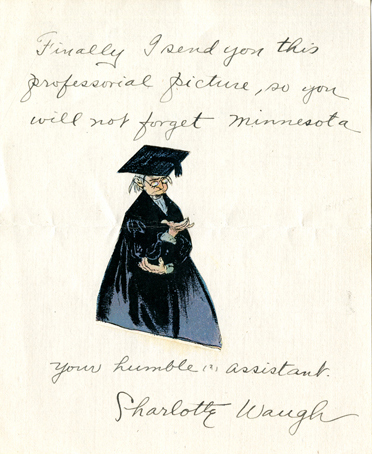 Finally I send you this
professorial picture, so you
will not forget Minnesota
your humble (?) assistant.
Sharlotte Waugh